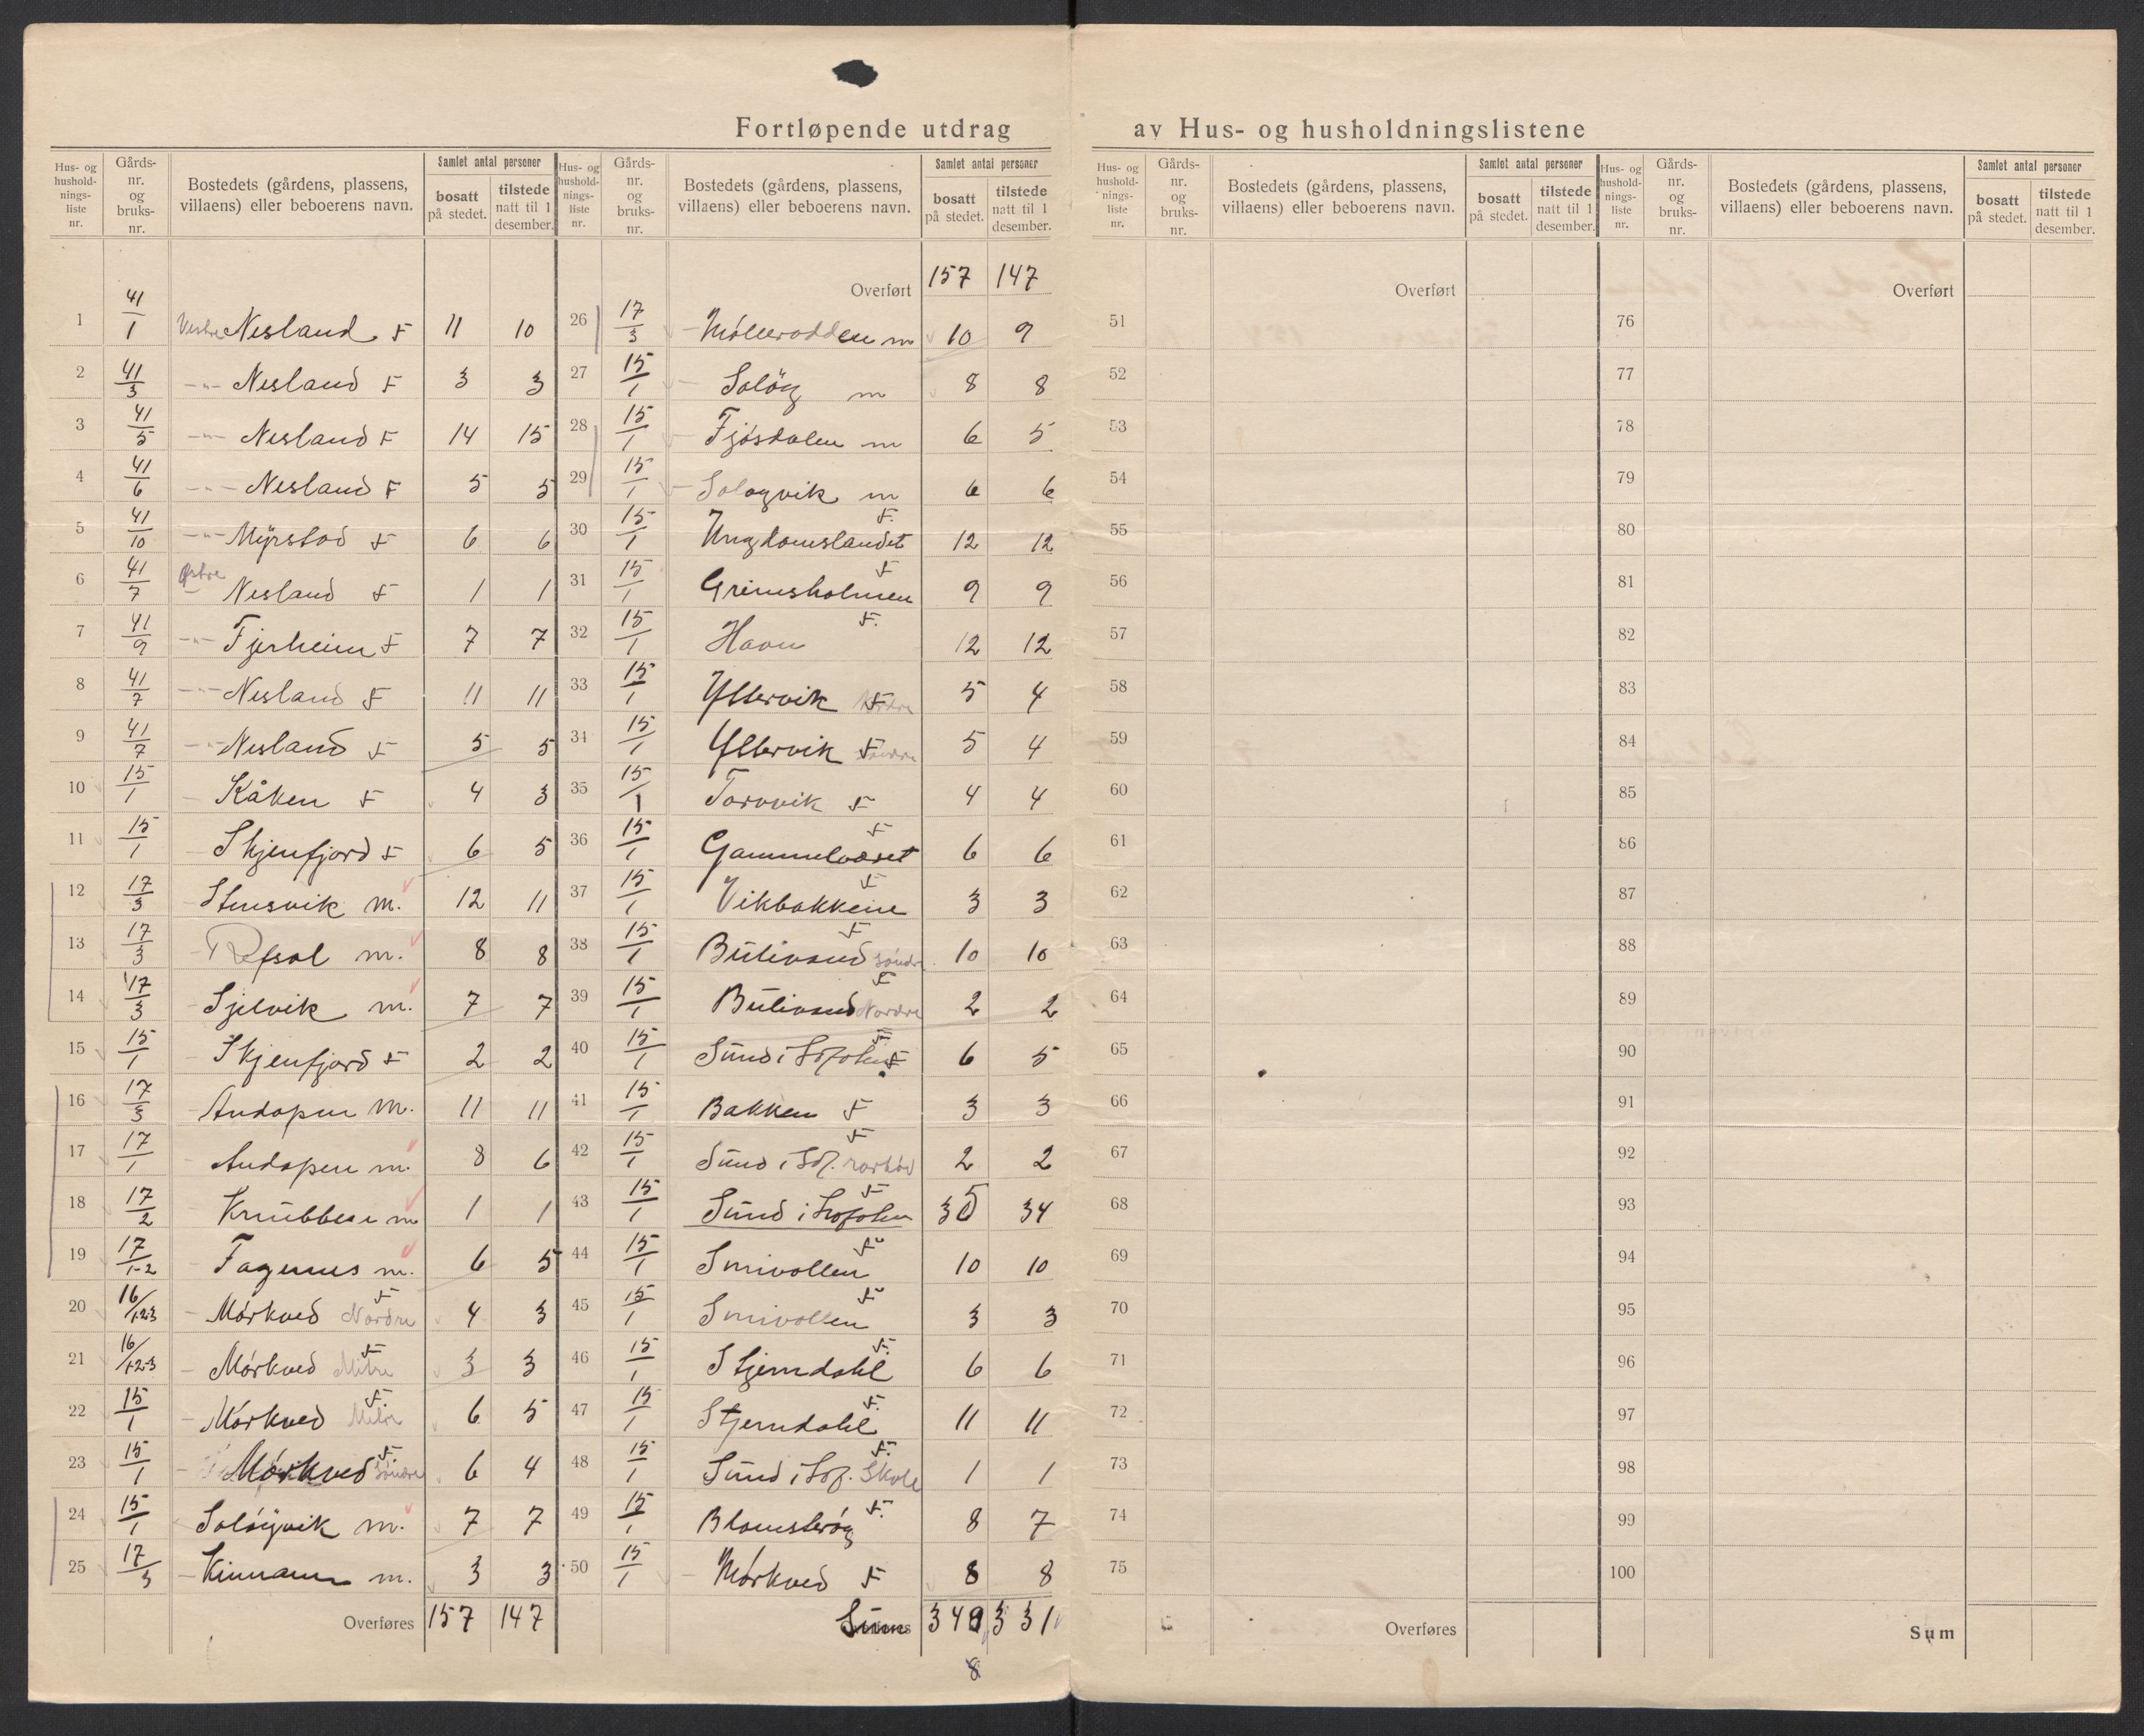 Fortløpende utdrag av Hus- og husholdningslistene
Hus- og hushold- nings- liste nr. | Gårds- nr. og bruks- nr. | Bostedets (gårdens, plassens, villaens) eller beboerens navn. | Samlet antal personer | bosatt på stedet. | tilstede natt til 1 desember.
1 41/1 Vestre Nesland F 11 10
2 41/3 -"- Nesland F 3 3
3 41/5 -"- Nesland F 14 15
4 41/6 -"- Nesland F 5 5
5 41/10 -"- Myrstad F 6 6
6 41/7 Østre Nesland F 1 1
7 41/9 -"- Fjerheim F 7 7
8 41/7 -"- Nesland F 11 11
9 41/7 -"- Nesland F 5 5
10 15/1 Kåken F 4 3
11 15/1 Skjenfjord F 6 5
12 17/3 Stensvik m. 12 11
13 17/3 Refsal m. 8 8
14 17/3 Sjelvik m. 7 7
15 15/1 Skjenfjord F 2 2
16 17/3 Andopen m. 11 11
17 17/1 Andopen m. 8 6
18 17/2 Krubben m 1 1
19 17/1-2 Fagernes m. 6 5
20 16/1-2-3 Mørkved Nordre F 4 3
21 16/1-2-3 Mørkved Mitre F 3 3
22 15/1 Mørkved Mitre F. 6 5
23 15/1 Mørkved Søndre F. 6 4
24 15/1 Soløyvik m. 7 7
25 17/3 Kinnann m. 3 3
Overføres 157 147
Hus- og hushold- nings- liste nr. | Gårds- nr. og bruks- nr. | Bostedets (gårdens, plassens, villaens) eller beboerens navn. | Samlet antal personer | bosatt på stedet. | tilstede natt til 1 desember.
Overført 157 147
26 17/3 Møllerodden m 10 9
27 15/1 Soløy m 8 8
28 15/1 Fjøsdalen m 6 5
29 15/1 Soløyvik m 6 6
30 15/1 Ungdomslandet F. 12 12
31 15/1 Grimsholmen F 9 9
32 15/1 Havn F. 12 12
33 15/1 Yttervik F Nordre 5 4
34 15/1 Yttervik F Søndre 5 4
35 15/1 Torvvik F 4 4
36 15/1 Gammelværet F 6 6
37 15/1 Vikbakkene F 3 3
38 15/1 Butivand Søndre F 10 10
39 15/1 Butivand Nordre F 2 2
40 15/1 Sund i Lofoten F 6 5
41 15/1 Bakken F 3 3
42 15/1 Sund i Lof. rorbod F 2 2
43 15/1 Sund i Lofoten F 35 34
44 15/1 Smivollen F 10 10
45 15/1 Smivollen F 3 3
46 15/1 Stjerndahl F. 6 6
47 15/1 Stjerndahl F. 11 11
48 15/1 Sund i Lof. Skole F. 1 1
49 15/1 Blomsterøy F. 8 7
50 15/1 Mørkved F 8 8
Sum 349 331
8
Hus- og hushold- nings- liste nr. | Gårds- nr. og bruks- nr. | Bostedets (gårdens, plassens, villaens) eller beboerens navn. | Samlet antal personer | bosatt på stedet. | tilstede natt til 1 desember.
Overført
51
52
53
54
55
56
57
58
59
60
61
62
63
64
65
66
67
68
69
70
71
72
73
74
75
Overføres
Hus- og hushold- nings- liste nr. | Gårds- nr. og bruks- nr. | Bostedets (gårdens, plassens, villaens) eller beboerens navn. | Samlet antal personer | bosatt på stedet. | tilstede natt til 1 desember.
Overført
76
77
78
79
80
81
82
83
84
85
86
87
88
89
90
91
92
93
94
95
96
97
98
99
100
Sum